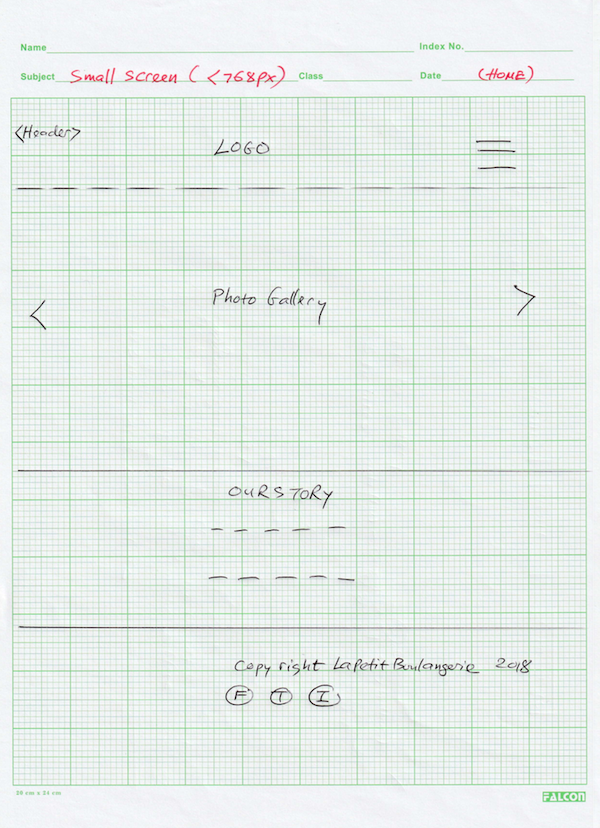 Name Index No.
Subject Small Screen (<768px) Class Date (HOME)
<Header>
LOGO
< Photo Gallery >
OUR STORY
Copy right LaPetit Boulangerie 2018
F T I
28 cm x 24 cm
FALCON